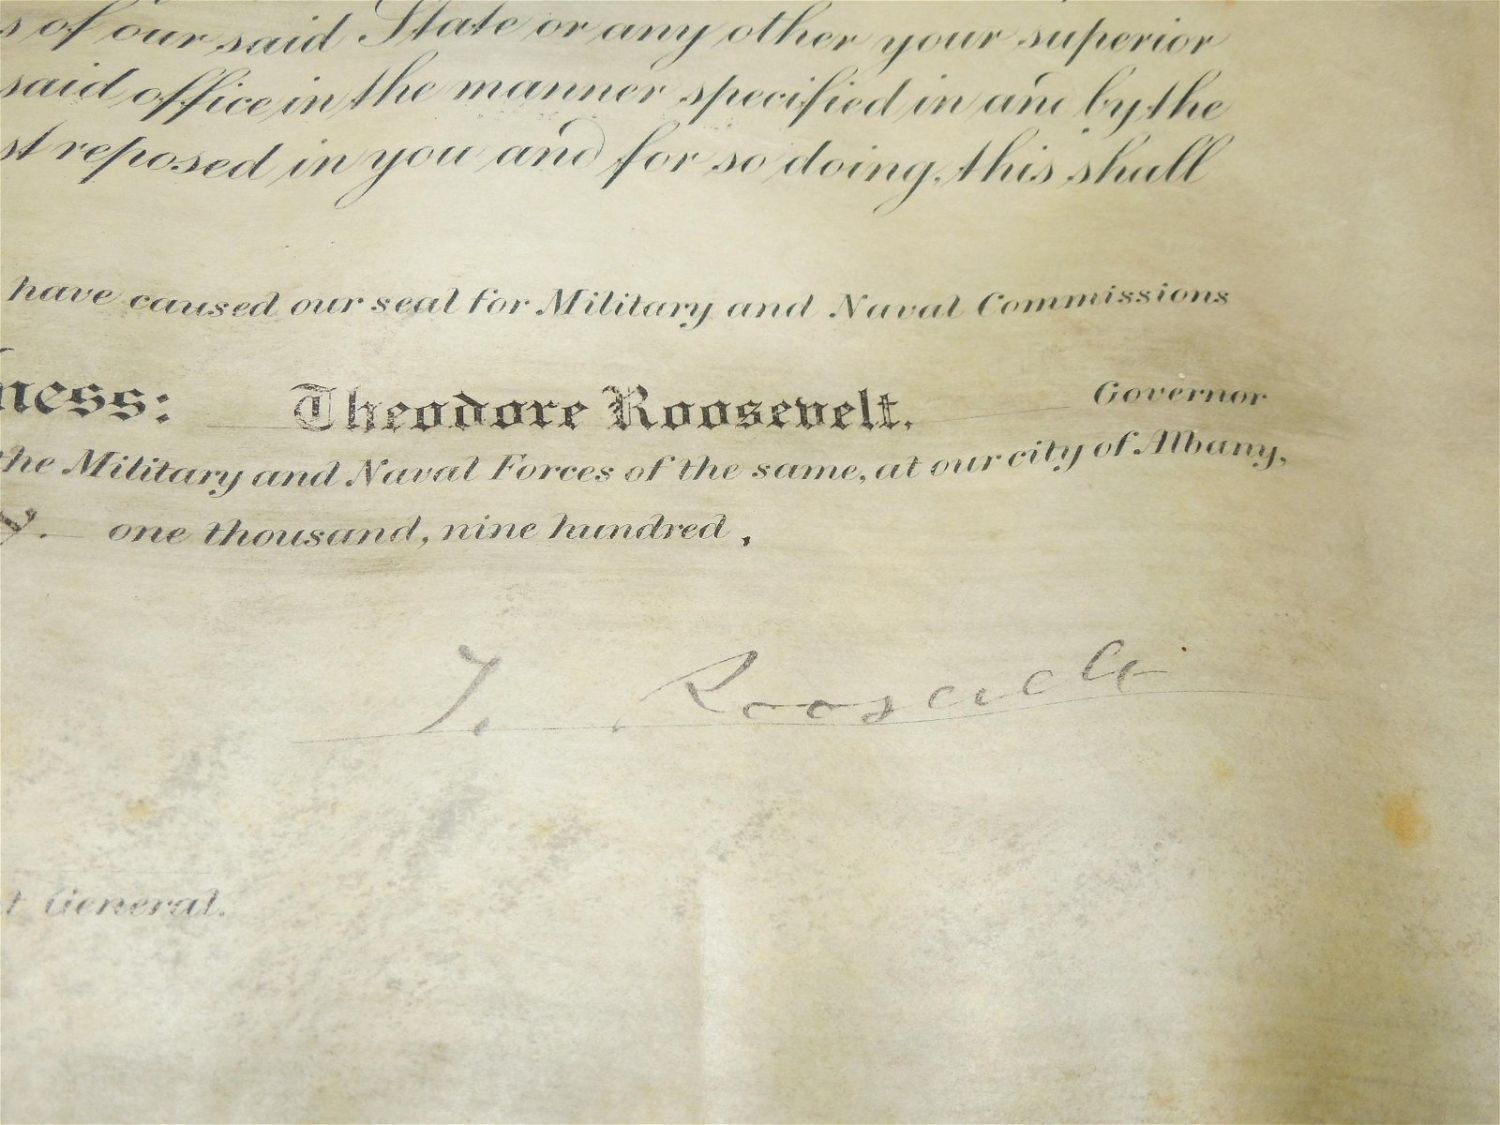 s of our said State or any other your superior
said office in the manner specified in and by the
st reposed in you and for so doing, this shall
have caused our seal for Military and Naval Commissions
ness: Theodore Roosevelt. Governor
the Military and Naval Forces of the same, at our city of Albany,
y. one thousand, nine hundred,
T. Roosevelt
t General.